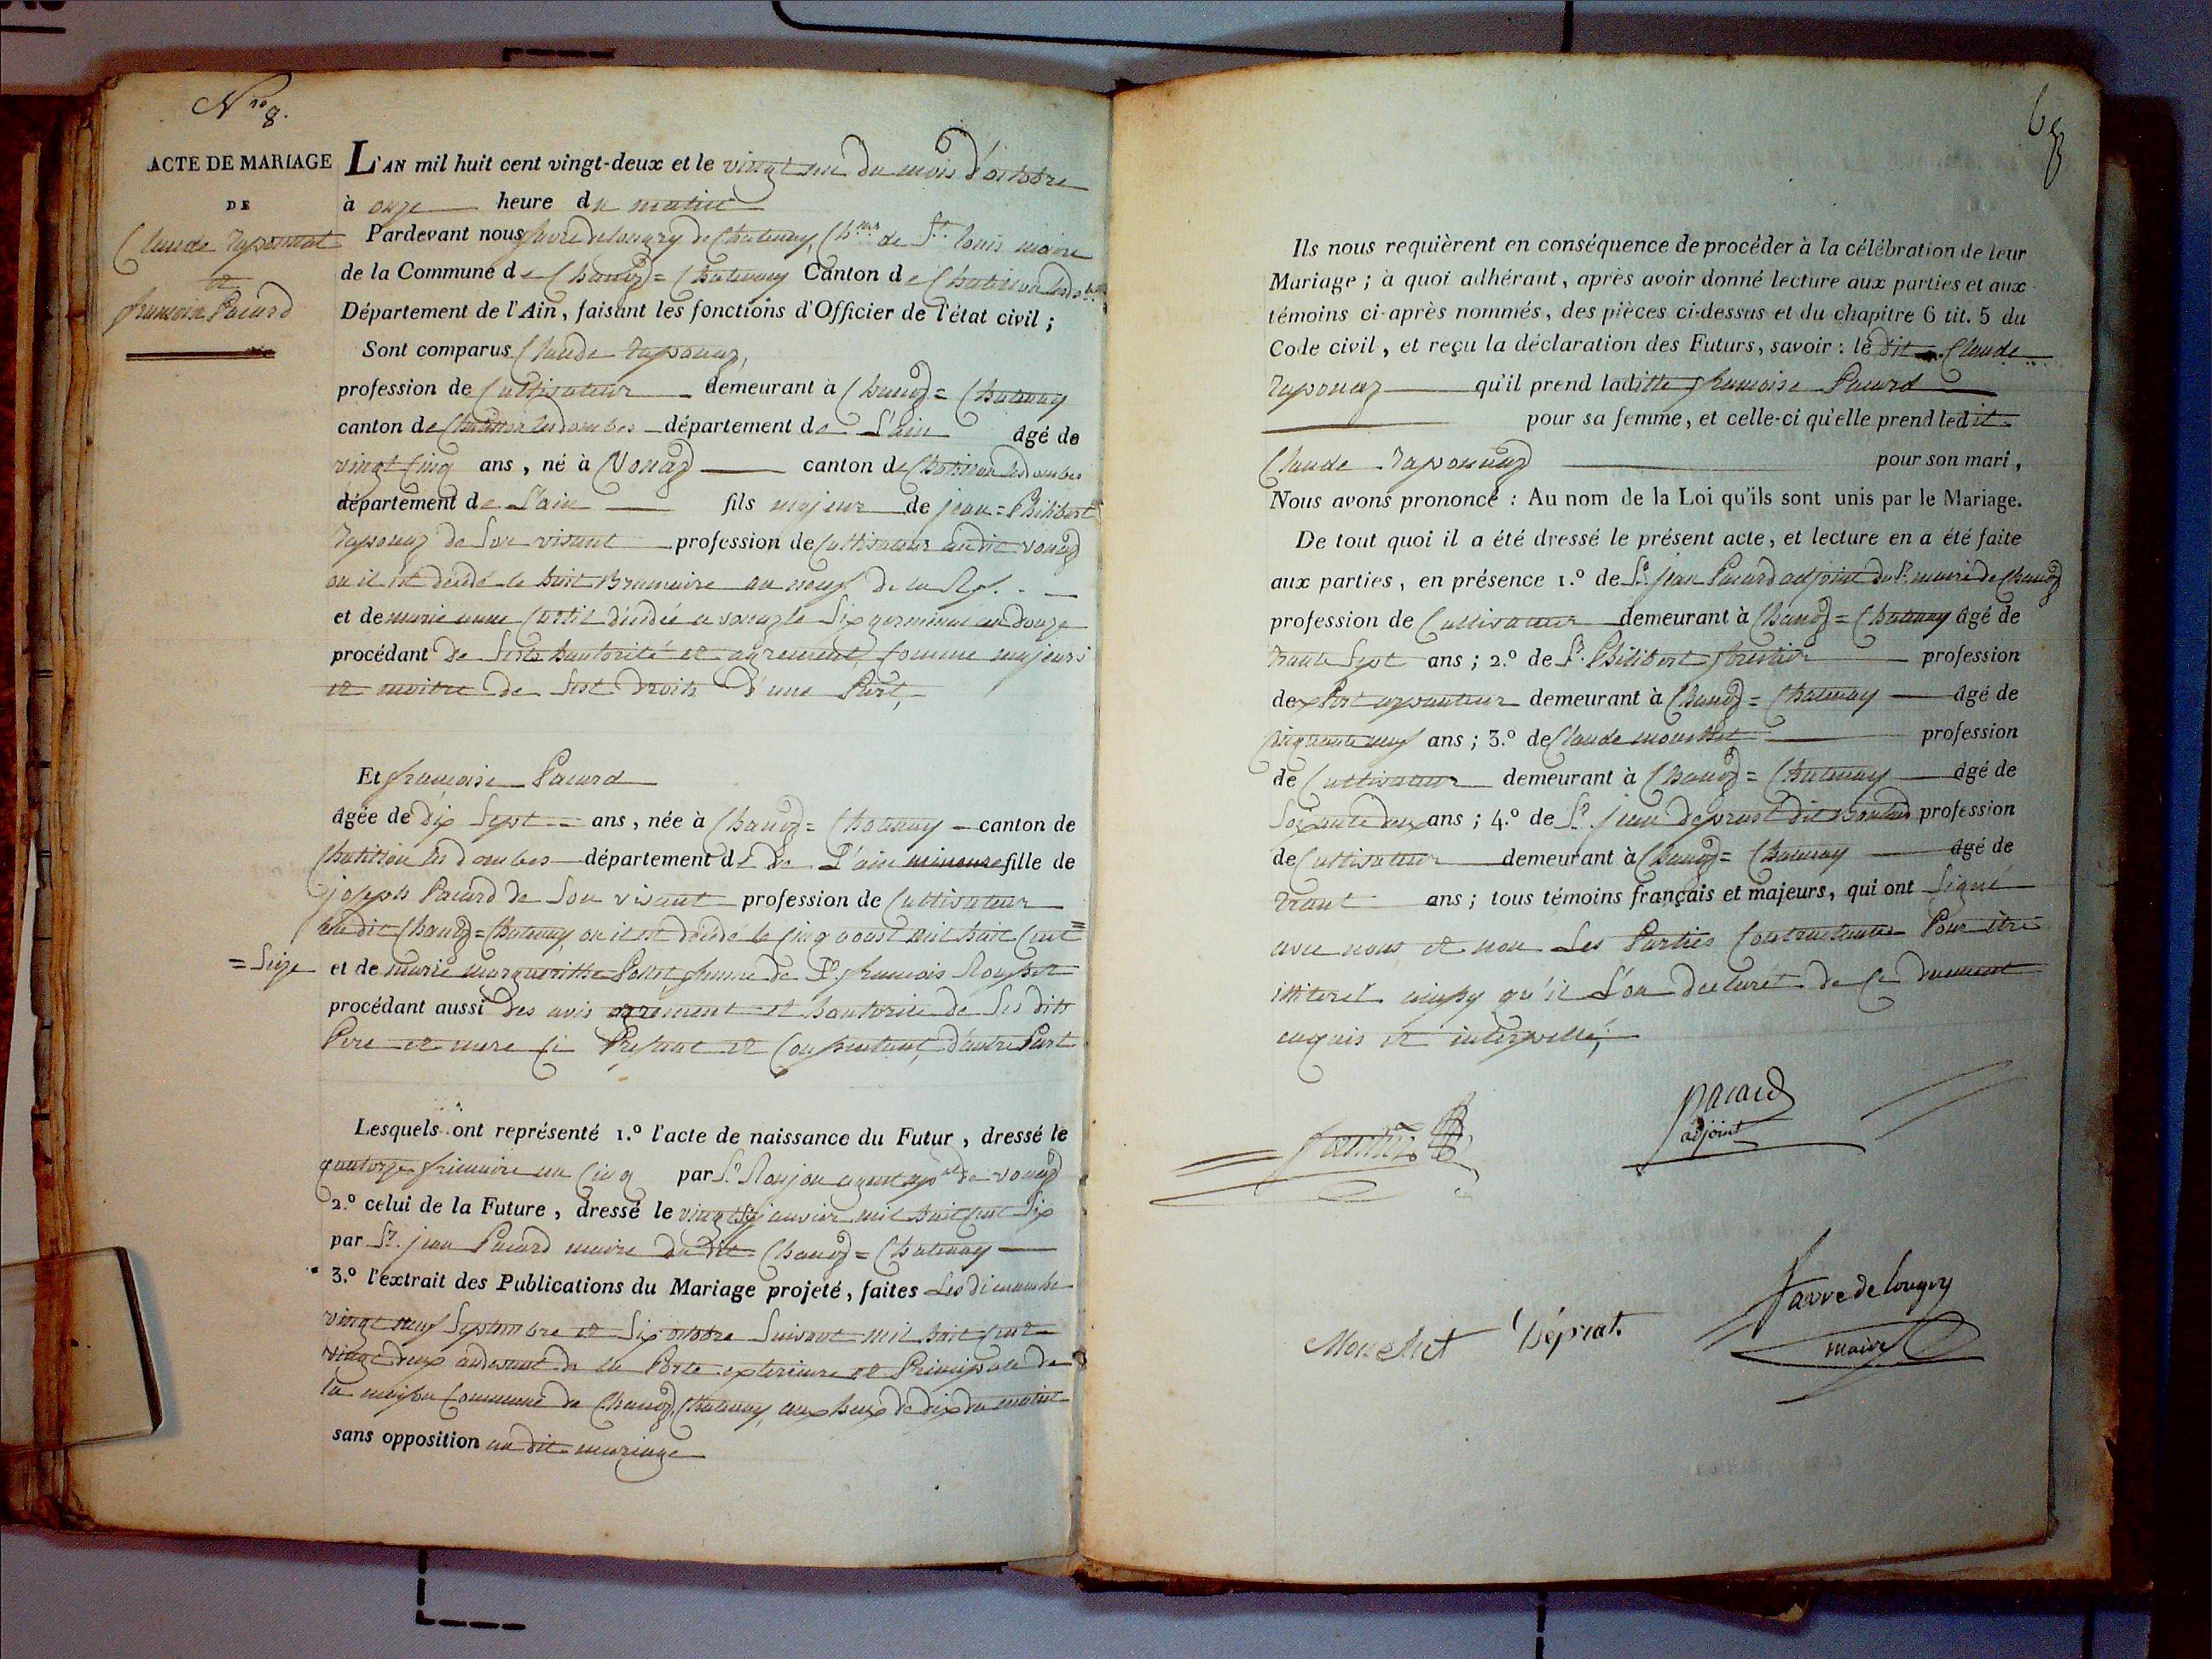 Nro 8.
ACTE DE MARIAGE
DE
Claude Taponnat
et
francoise Pacard
L'AN mil huit cent vingt-deux et le vingt une du mois d'octobre
à onze heure du matin
Pardevant nous favre delongry de Chatenay, Ch.er de St. louis maire
de la Commune de Chanoz=Chatenay Canton de Chatillon les d.bes
Département de l'Ain, faisant les fonctions d'Officier de l'état civil ;
Sont comparus Claude taponaz,
profession de Cultivateur demeurant à Chanoz=Chatenay
canton de Chatillon les dombes département de L'ain âgé de
vingt Cinq ans, né à Vonaz canton de Chatillon les dombes
département de L'ain fils majeur de jean=Philibert
Taponaz de Son vivant profession de Cultivateur audit vonaz
ou il est décédé le huit Brumaire an neuf de la Rep.
et de marie anne Cortil décédée a vonaz le Six germinal an douze
procédant de hautorité et agrement Comme majeurs
et maitre de Sest droits d'une Part,
Et francoise Pacard
âgée de dix Sept ans, née à Chanoz=Chatenay canton de
Chatillon les dombes département de de L'ain mineure fille de
joseph Pacard de Son vivant profession de Cultivateur
au dit Chanoz=Chatenay, ou il est décédé le Cinq aoust mil huit Cent=
=Seize et de marie margueritte Pollet femme de Sr. francois
procédant aussi des avis agrement et hautorité de Ses dits
Pere et mere Ci Present et Consentent, d'autre Part
Lesquels ont représenté 1.º l'acte de naissance du Futur, dressé le
quatorze frimaire an Cinq par Sr. Roujon agent de vonaz
2.º celui de la Future, dressé le vingt janvier mil huit Cent Six
par Sr. jean Pacard maire du dit Chanoz=Chatenay
3.º l'extrait des Publications du Mariage projeté, faites Les dimanche
vingt neuf Septembre et Six octobre Suivant mil huit Cent
vingt deux audevant de la Porte exterieure et Principale de
la maison Commune de Chanoz, Chatenay, de dix du matin
sans opposition au dit mariage
68
Ils nous requièrent en conséquence de procéder à la célébration de leur
Mariage ; à quoi adhérant, après avoir donné lecture aux parties et aux
témoins ci-après nommés, des pièces ci-dessus et du chapitre 6 tit. 5 du
Code civil, et reçu la déclaration des Futurs, savoir : le dit Claude
Taponaz qu'il prend laditte francoise Pacard
pour sa femme, et celle-ci qu'elle prend ledit
Claude Taponaz pour son mari,
Nous avons prononcé : Au nom de la Loi qu'ils sont unis par le Mariage.
De tout quoi il a été dressé le présent acte, et lecture en a été faite
aux parties, en présence 1.º de Sr. jean Pacard adjoint du Sr. maire de Chanoz
profession de Cultivateur demeurant à Chanoz=Chatenay âgé de
trante Sept ans ; 2.º de Sr. Philibert profession
dexpert arpenteur demeurant à Chanoz=Chatenay âgé de
Cinquante neuf ans ; 3.º de Claude monchet profession
de Cultivateur demeurant à Chanoz=Chatenay âgé de
Soixante deux ans ; 4.º de Sr. jean deprast dit profession
de Cultivateur demeurant à Chanoz=Chatenay âgé de
trant ans ; tous témoins français et majeurs, qui ont Signé
avec nous et non Les Parties Contractantes Pour être
illiteret ainssy qu'il L'on decleret de Ce duement
enquis et interpellé,
pacard
adjoint
Monchet
Déprat.
favre de longry
maire